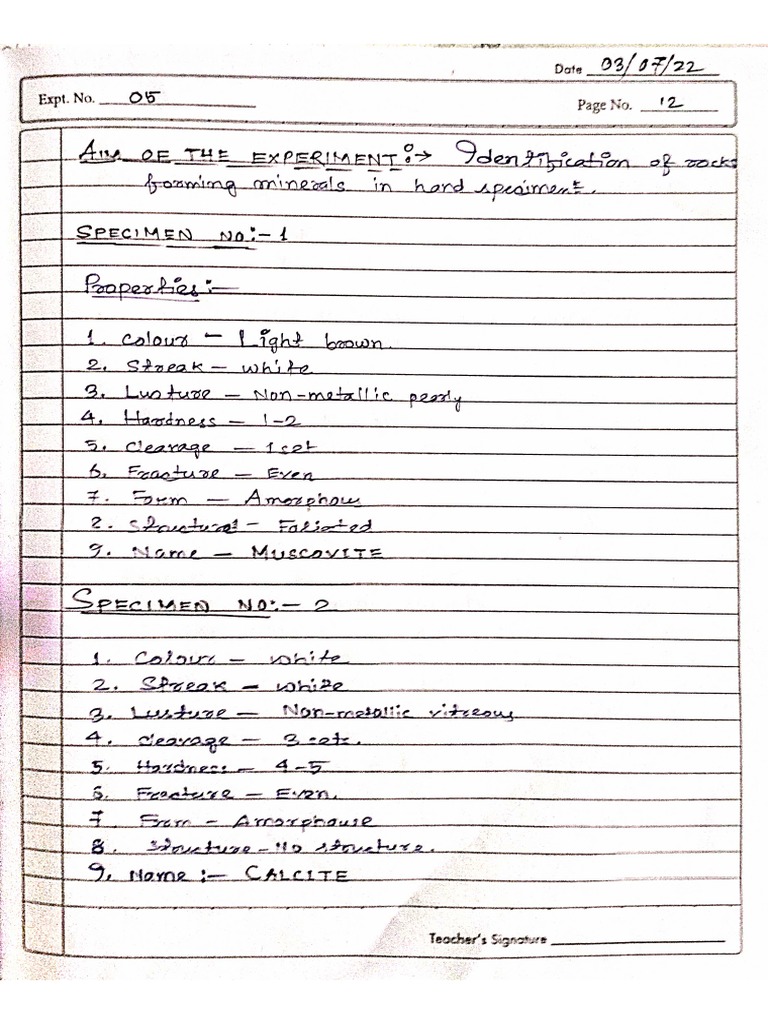 Date 03/07/22
Expt. No. 05
Page No. 12
AIM OF THE EXPERIMENT:→ Identification of rocks
forming minerals in hand speciment.
SPECIMEN NO:- 1
Properties:-
1. Colour - Light brown.
2. Streak - white
3. Lusture - Non-metallic pearly
4. Hardness - 1-2
5. Cleavage - 1 set
6. Fracture - Even
7. Form - Amorphous
8. Structural - Foliated
9. Name - MUSCOVITE
SPECIMEN NO:- 2
1. Colour - white
2. Streak - white
3. Lusture - Non-metallic vitreous
4. cleavage - 3 sets.
5. Hardness - 4-5
6. Fracture - Even.
7 From - Amorphouse
8. Structure - No structure.
9. Name :- CALCITE
Teacher's Signature